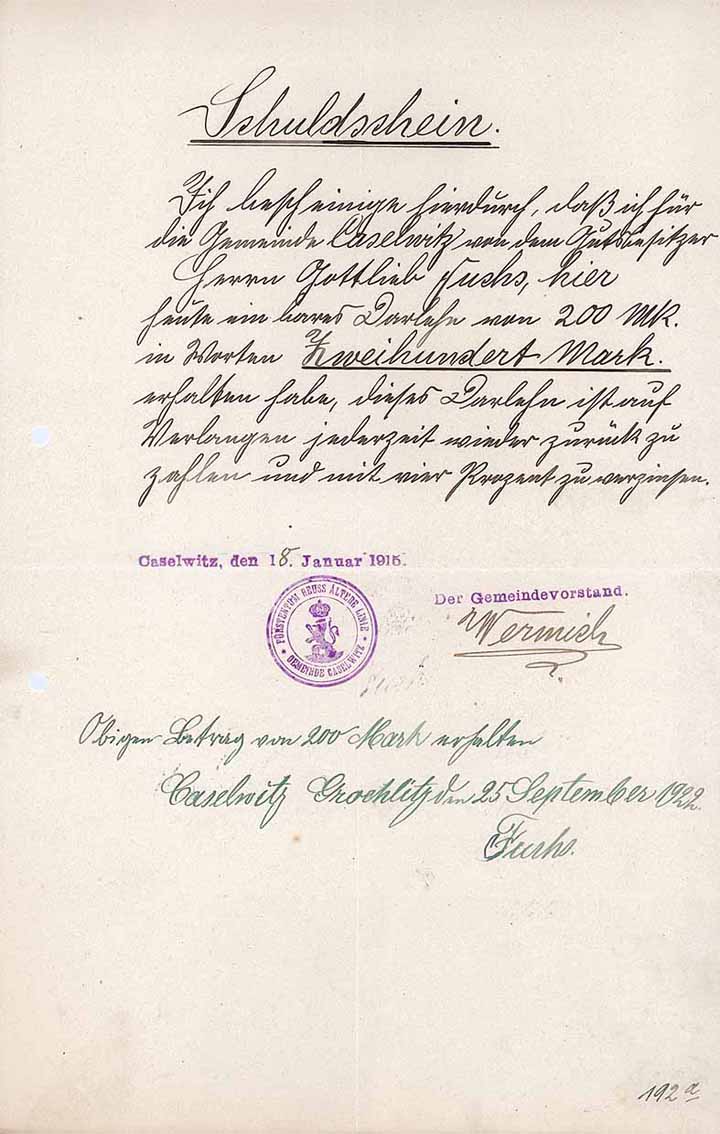 Schuldschein.
Ich bescheinige hierdurch, daß ich für
die Gemeinde Caselwitz von dem Gutsbesitzer
Herrn Gottlieb Fuchs, hier
heute ein bares Darlehn von 200 Mk.
in Worten Zweihundert Mark.
erhalten habe, dieses Darlehn ist auf
Verlangen jederzeit wieder zurück zu
zahlen und mit vier Prozent zu verzinsen.
Caselwitz, den 18. Januar 1915.
FÜRSTENTUM REUSS ÄLTERE LINIE
GEMEINDE CASELWITZ
Der Gemeindevorstand.
Wermich
Obigen Betrag von 200 Mark erhalten
Caselwitz Grochlitz den 25 September 1922.
Fuchs.
192 a